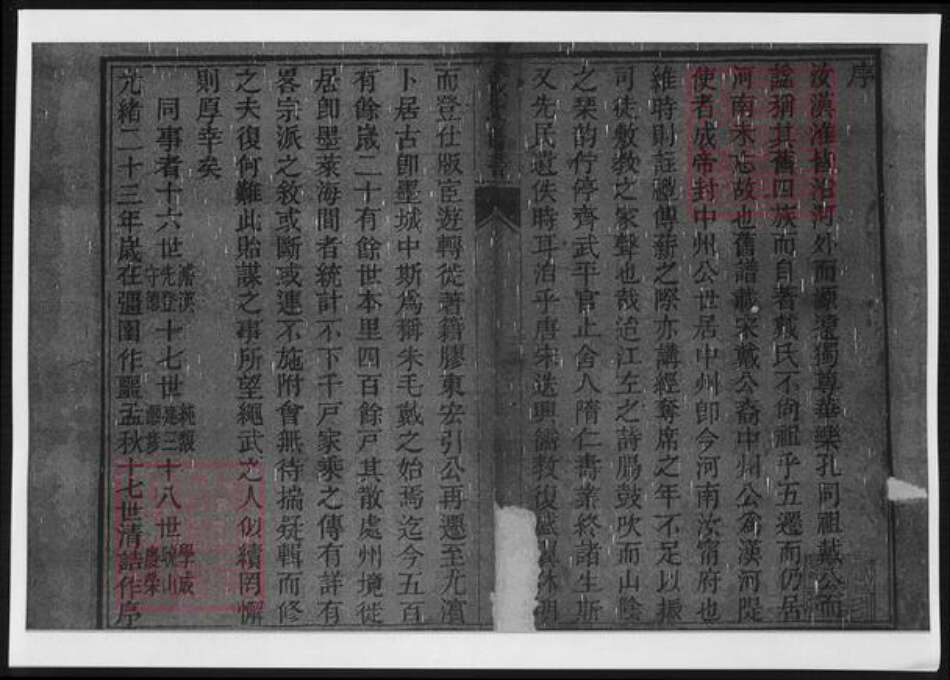 序
汝漢淮皆治河外而源遠獨尊華樂孔同祖戴公而
謚猶其舊四族而自著戴氏不尚祖乎五遷而仍居
河南木忘故也舊譜載宋戴公裔中州公為漢河隄
使者成帝封中州公世居中州即今河南汝甯府也
維時則註禮傳薪之際亦講經奪席之年不足以振
司徒敷教之家聲也哉迨江左之詩腸鼓吹而山陰
之琴的佇停齊武平官止舍人隋仁壽業終諸生斯
又先民遺佚時耳洎乎唐宋迭興儒教復盛
而登仕版宦遊轉徙著籍膠東宏引公再遷至尤濵
卜居古即墨城中斯為朔朱毛戴之始焉迄今五百
有餘歲二十有餘世本里四百餘戸其散處州境徙
居即墨萊海間者統計不下千戸家乘之傳有詳有
畧宗派之敘或斷或連不施附會無待揣疑輯而修
之夫復何難此貽謀之事所望繩武之人似續罔懈
則厚幸矣
同事者十六世 先登 守德 十七世 建三 十八世 毓山 學成 慶榮
光緒二十三年歲在彊圉作噩孟秋十七世清誥作序